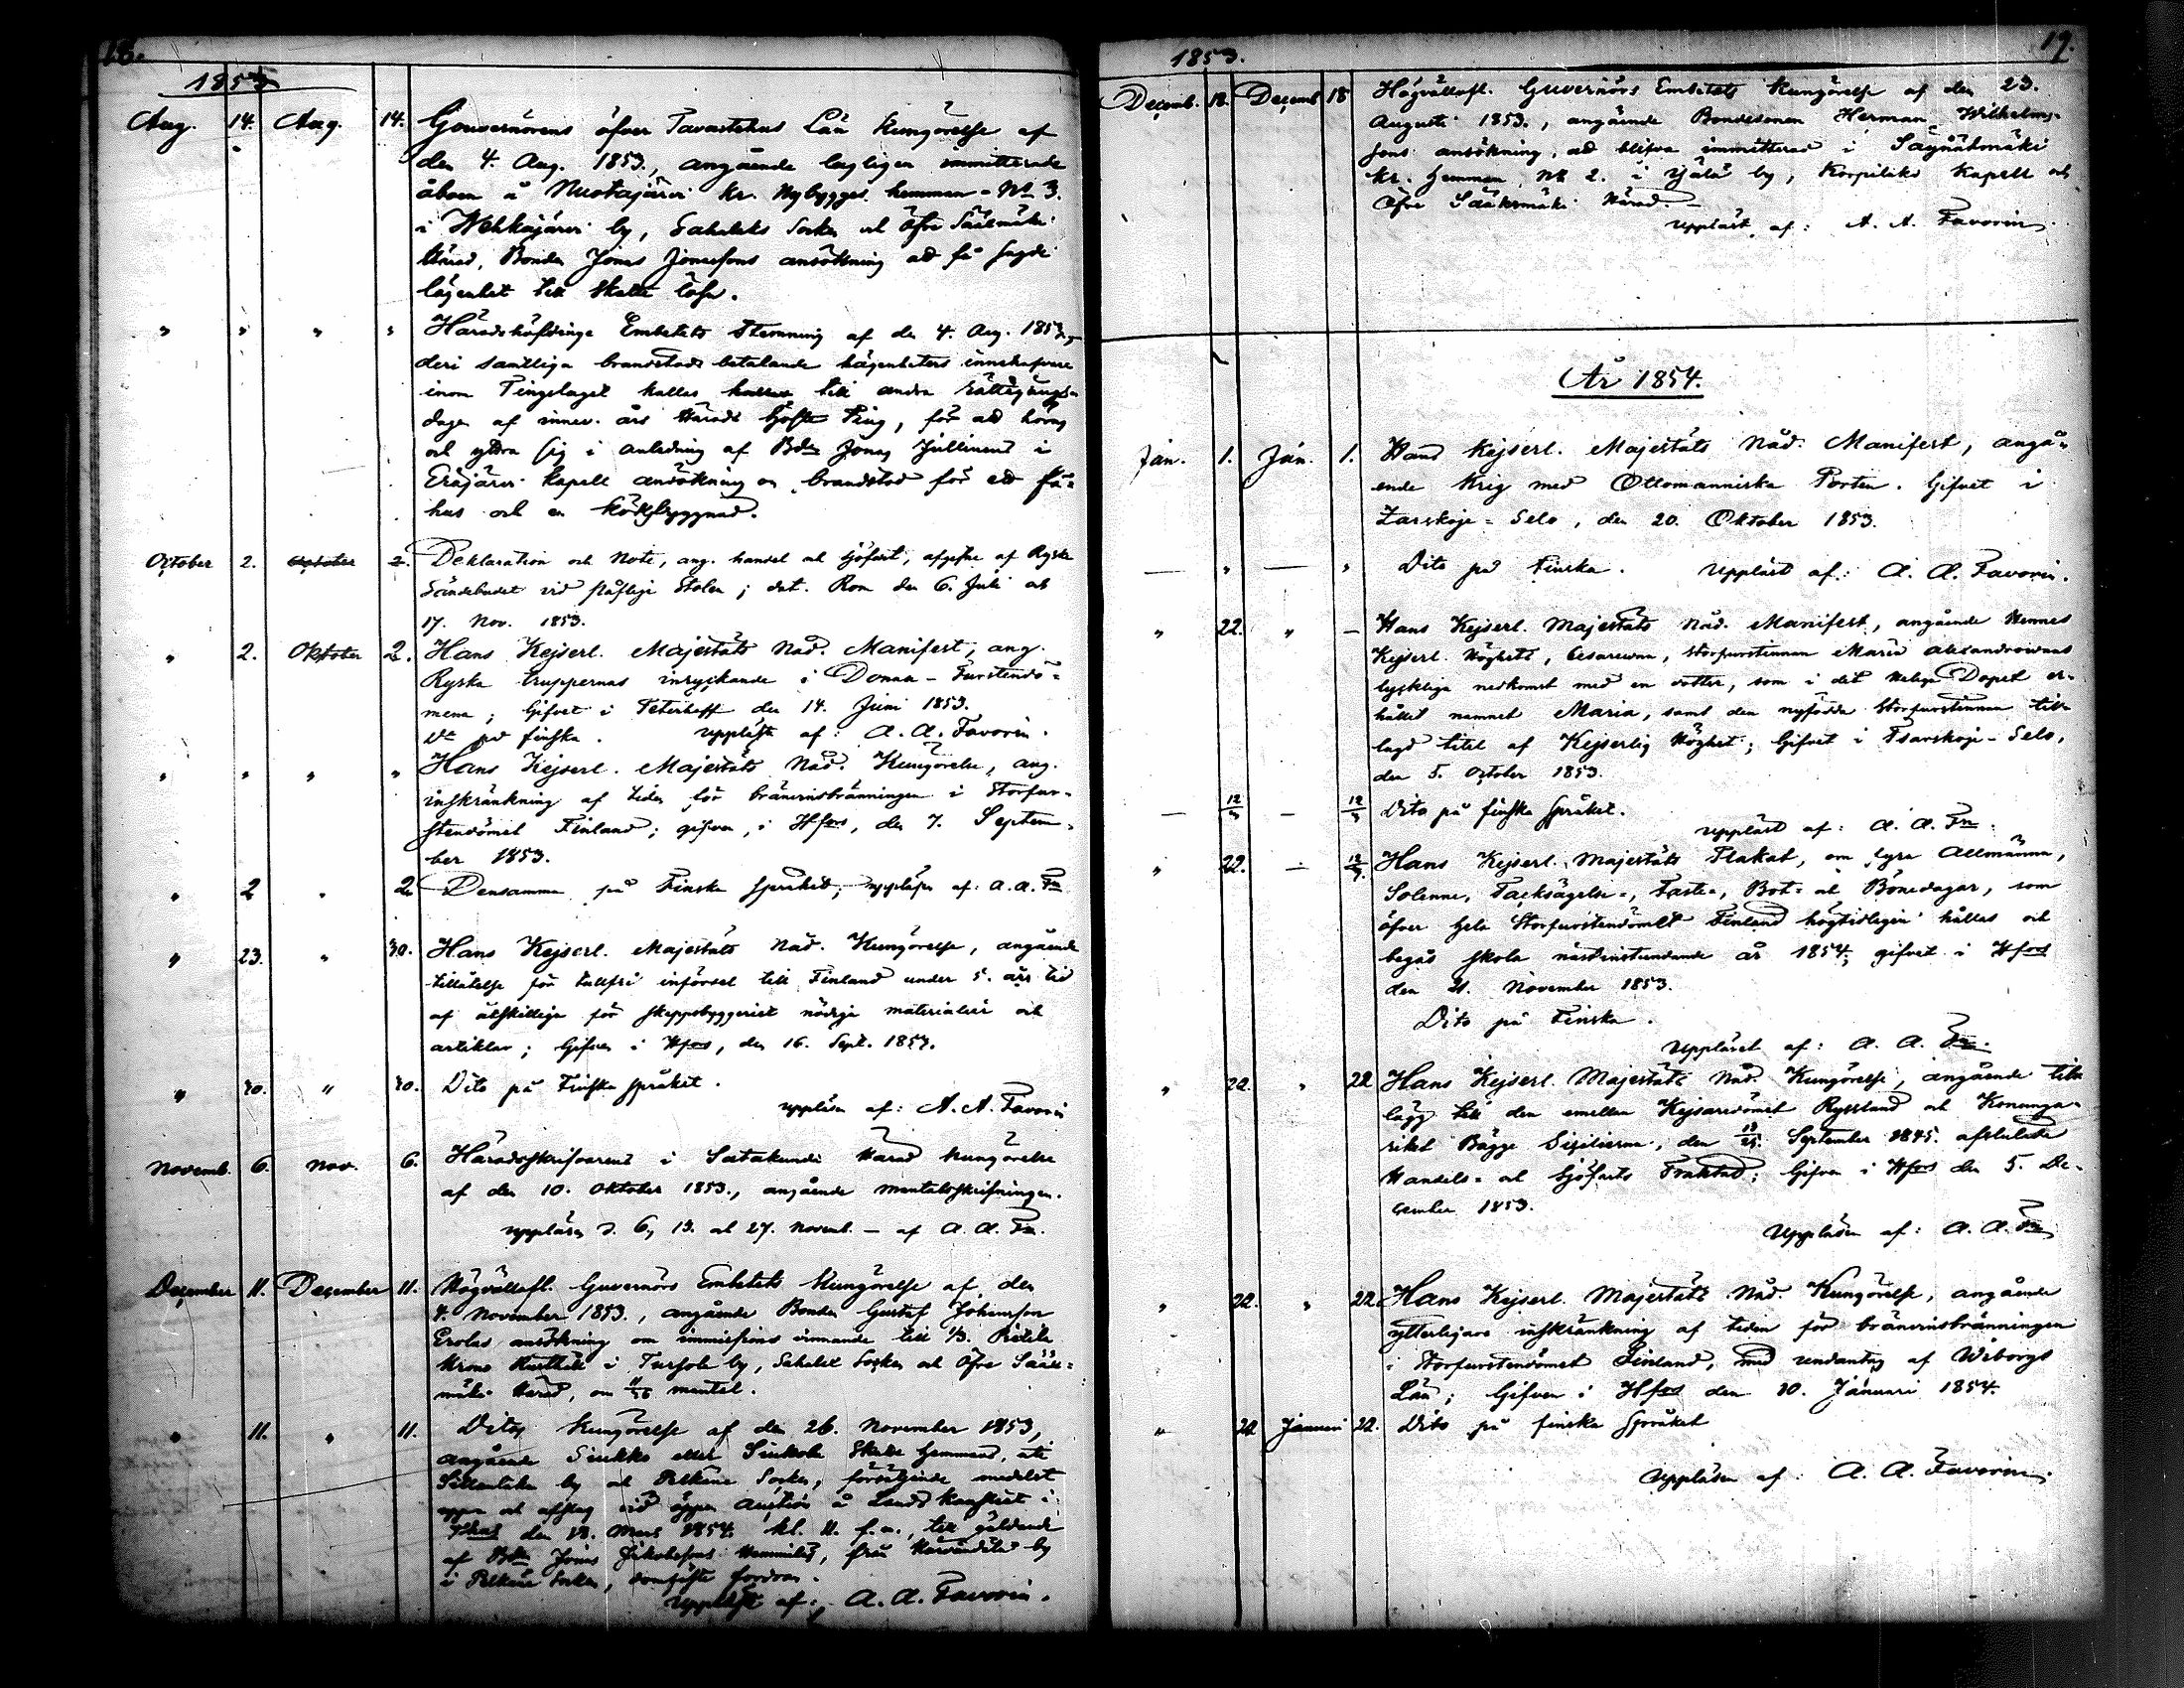 18.
1853
Aug. 14. Aug. 14. Gouvernörens öfver Tavastehus Län Kungörelse af
den 4. Aug. 1853., angående lagligen immitterade
åboen å Nuotajärvi kr. Nybygges hemman = No 3.
i Wehkajärvi by, Sahalaks Socken och Öfre Sääxmäki
Härad, Bonden Jonas Jonassons ansökning att få sagde
lägenhet till Skatte lösa.
" " " " Häradshöfdinge Embetets Stemning af den 4. Aug. 1853.,
deri samtliga brandstods betalande lägenheters innehafvare
inom Tingslaget kallas till andra rättegångs=
dagen af innev. års Härads Höste Ting, för att höras
och yttra sig i anledning af Bdn Jonas Jullinens i
Eräjärvi Kapell ansökning om brandstod för ett fä=
hus och en Köksbyggnad.
October 2. October 2. Deklaration och Note, ang. handel och sjöfart, afgifne af Ryske
Sändebudet vid påflige Stolen; dat. Rom den 6. Juli och
17. Nov. 1853.
" 2. Oktober 2. Hans Kejserl. Majestäts Nåd. Manifest, ang.
Ryska truppernas inryckande i Donau-Furstendö=
mena; Gifvet i Peterhoff den 14. Juni 1853.
Do på finska. Uppläste af: A. A. Favorin.
" " " " Hans Kejserl. Majestäts Nåd. Kungörelse, ang.
inskränkning af tiden för bränvinsbränningen i Storfur=
stendömet Finland; gifven, i Hfors, den 7. Septem=
ber 1853.
" 2 " 2 Densamma på Finska språket; uppläsen af: A. A. Fn
" 23. " 30. Hans Kejserl. Majestäts Nåd. Kungörelse, angående
tillåtelse för tullfri införsel till Finland under 5. års tid
af åtskillige för skeppsbyggeriet nödige materialier och
artiklar; Gifven i Hfors, den 16. Sept. 1853.
" 30. " 30. Dito på Finska språket.
uppläsen af: A. A. Favorin
Novemb. 6. Nov. 6. Häradsskrifvarens i Satakunda Härad Kungörelse
af den 10. Oktober 1853., angående mantalsskrifningen.
uppläsen d. 6, 13. och 27. Novemb. — af A. A. Fn.
December 11. December 11. Högvällofl. Guvernörs Embetets Kungörelse af den
4. November 1853., angående Bonden Gustaf Johansson
Erolas ansökning om immissions vinnande till 1/3.
Krono i by, Sahalax Socken och Öfre Sääx=
mäki Härad, om mantal.
" 11. " 11. Ditos Kungörelse af den 26. November 1853,
angående Siukko eller Siukola Skatte Hemmans, uti
by och Pelkäne Socken, försäljande medelst
opp och afslag vid öppen Auction å Lands Kansliet i
Thus den 18. Mars 1854. kl. 11. f.m., till gäldande
af Bdn Jonas Jakobssons från by
i Pelkäne Socken, fordran.
Uppläst af: A. A. Favorin.
1853. 19.
Decemb. 18. Decemb 18 Högvällofl. Guvernörs Embetets Kungörelse af den 23.
Augusti 1853., angående Bondesonen Herman Wilhelms=
sons ansökning, att blifva immitterad i Säynätmäki
kr. Hemman No 2. i by, Korpilaks Kapell och
Öfre Sääksmäki Härad.
Uppläst af: A. A. Favorin.
År 1854.
Jan. 1. Jan. 1. Hans Kejserl. Majestäts Nåd. Manifest, angå=
ende Krig med Ottomanniska Porten. Gifvet i
Zarskoje=Selo, den 20. Oktober 1853.
— " — " Dito på Finska. Uppläst af: A. A. Favorin.
" 22. " — Hans Kejserl. Majestäts Nåd. Manifest, angående Hennes
Kejserl. Höghets, Cesarewnan, Storfurstinnan Maria Alexandrownas
lyckliga nedkomst med en dotter, som i det Heliga Dopet er=
hållit namnet Maria, samt den nyfödda Storfurstinnan till=
lagd titel af Kejserlig Höghet; Gifvet i Tsarskoje-Selo,
den 5. October 1853.
Dito på finska språket.
Uppläst af: A. A. Fn.
" 22. — Hans Kejserl. Majestäts Plakat, om fyra Allmänna,
Solenne, Tacksägelse=, Faste=, Bot= och Bönedagar, som
öfver hela Storfurstendömet Finland högtidligen hållas och
begås skola nästinstundande år 1854; gifvet i Hfors
den 21. November 1853.
Dito på Finska.
Uppläset af: A. A. Fn.
" 22. " 22 Hans Kejserl. Majestäts Nåd. Kungörelse, angående till=
lägg till den emellan Kejsaredömet Ryssland och Konunga=
riket Bägge Sicilierna, den 13/25. September 1845. afslutade
Handels= och Sjöfarts Traktad; Gifven i Hfors den 5. De=
cember 1853.
Uppläsen af: A. A. Fn
" 22. " 22 Hans Kejserl. Majestäts Nåd. Kungörelse, angående
ytterligare inskränkning af tiden för bränvinsbränningen
i Storfurstendömet Finland, med undantag af Wiborgs
Län; Gifven i Hfors den 10. Januari 1854.
" 22 Januari 22. Dito på finska språket
Uppläsen af: A. A. Favorin.